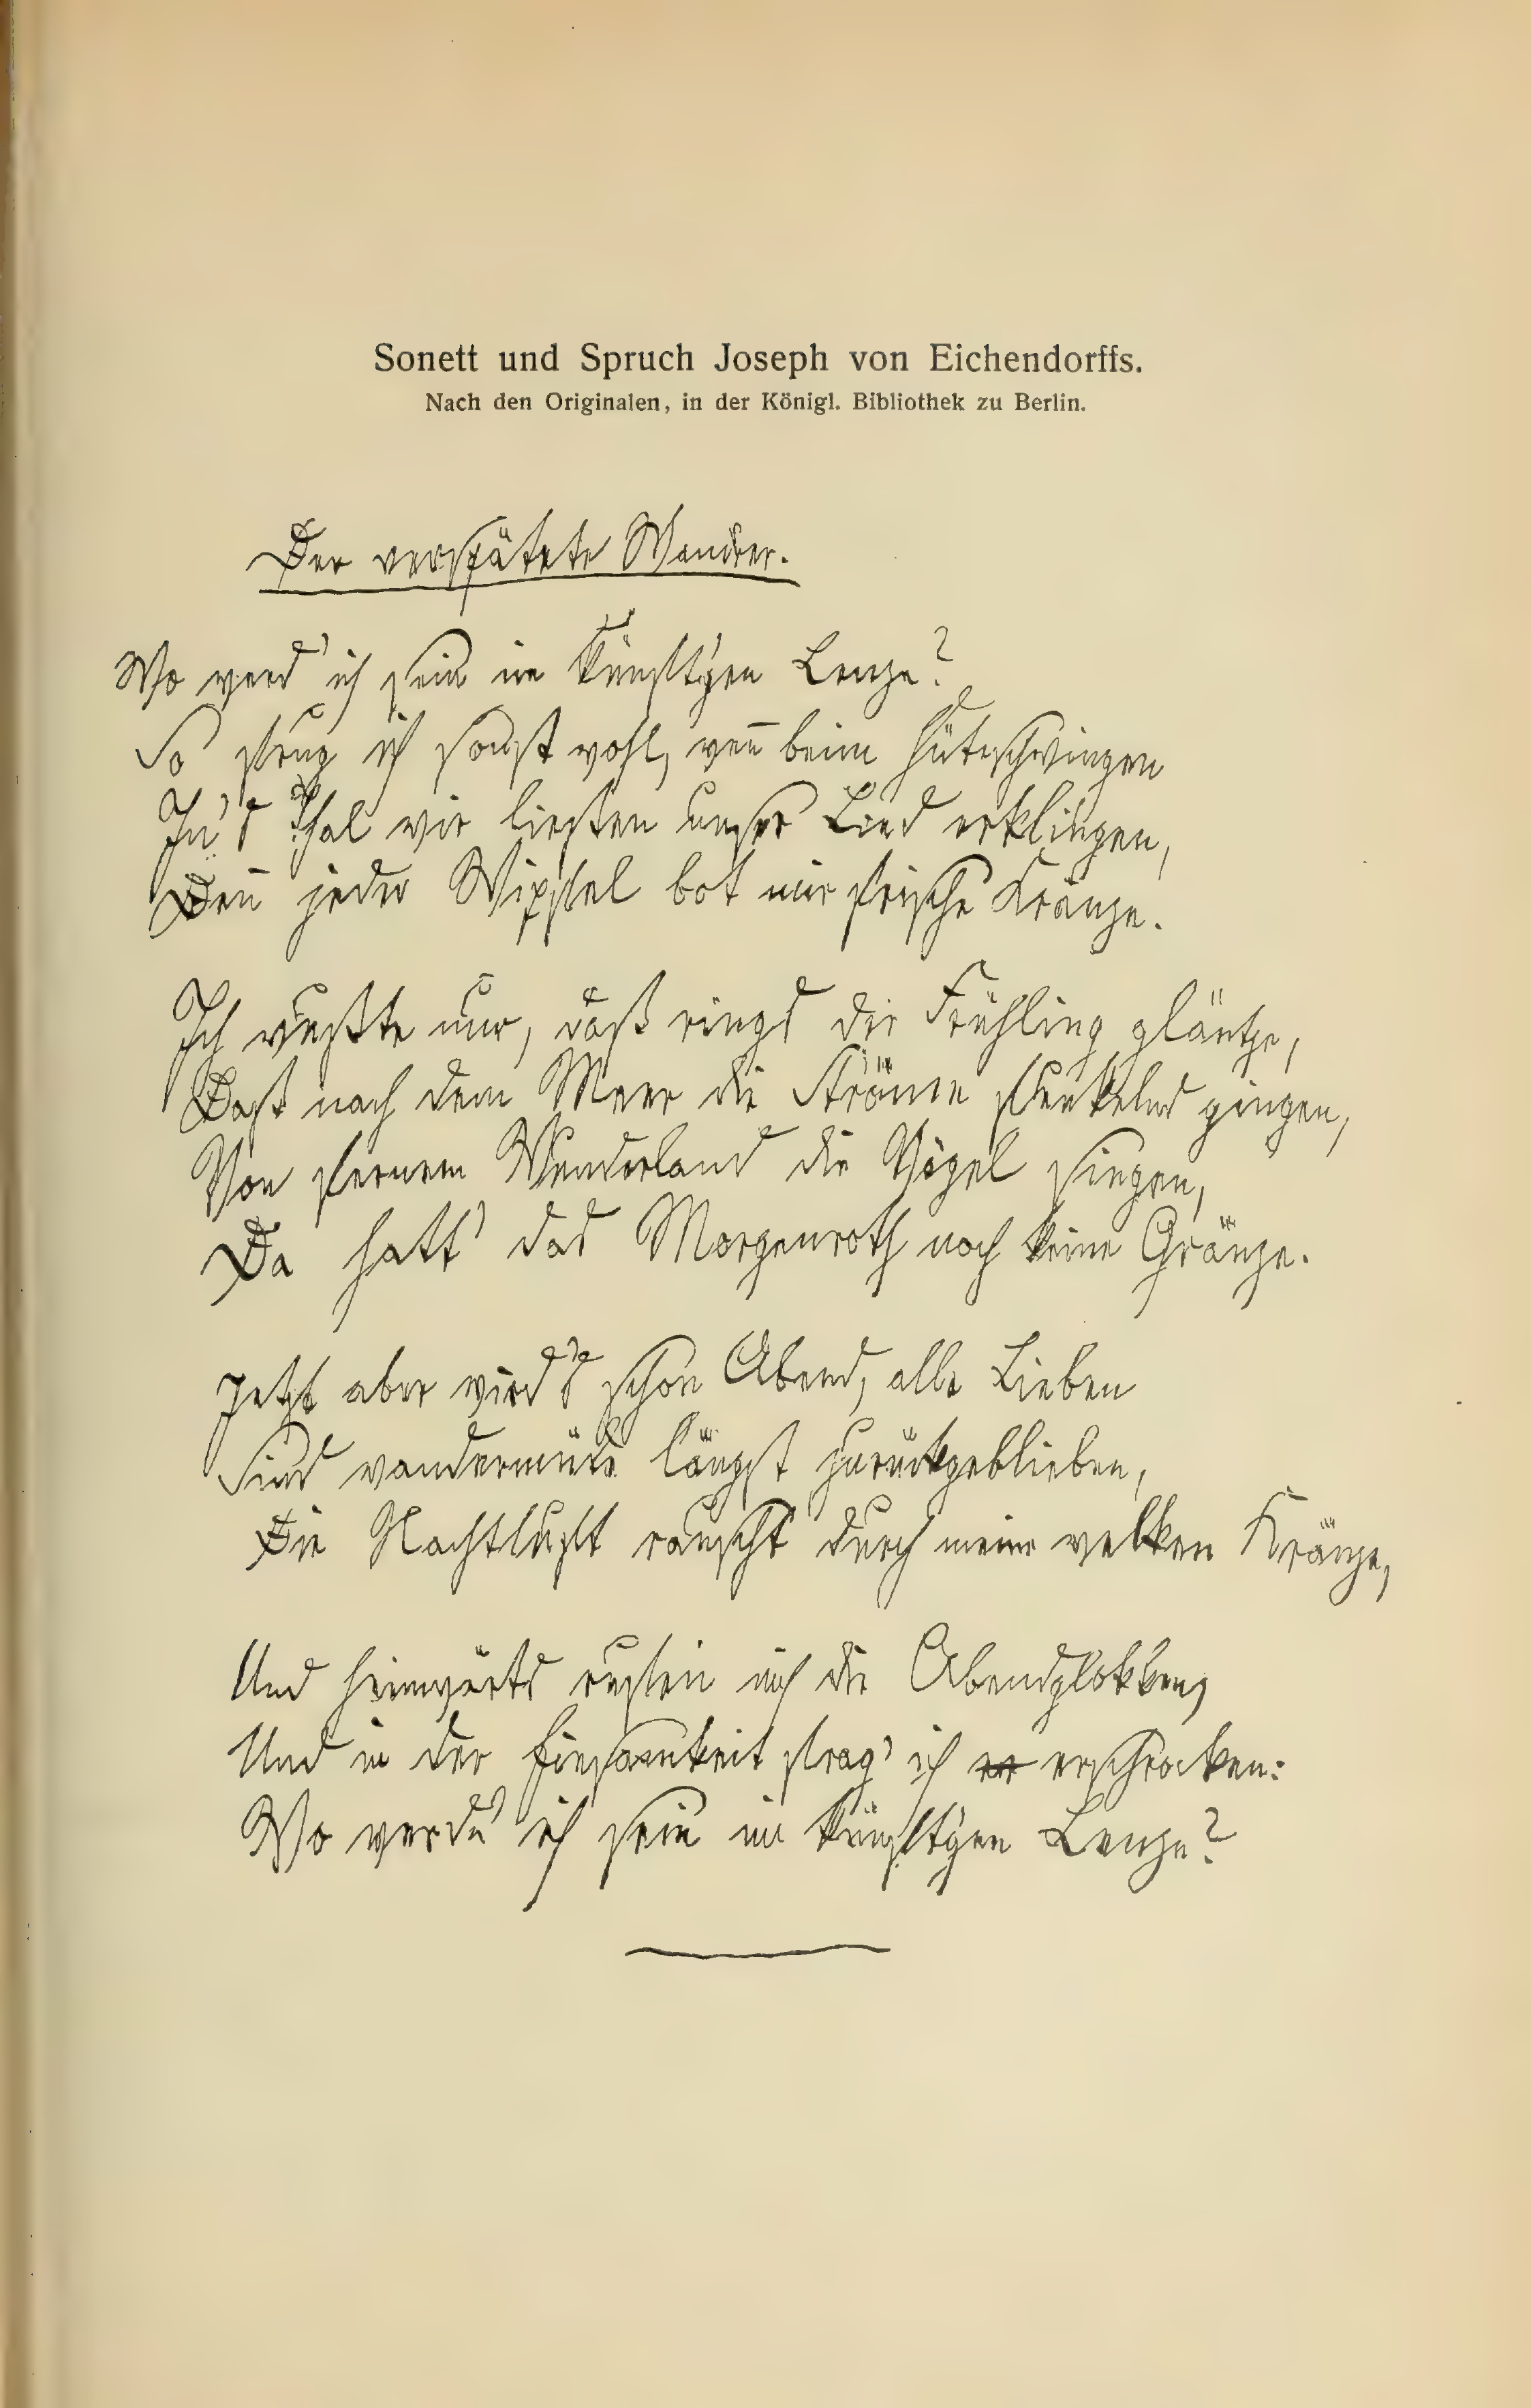 Sonett und Spruch Joseph von Eichendorffs.
Nach den Originalen, in der Königl. Bibliothek zu Berlin.
Der verspätete Wandrer.
Wo werd' ich sein im künft'gen Lenze?
So frug ich sonst wohl, wen̄ beim Hüteschwingen
In's Thal wir ließen unser Lied erklingen,
Den̄ jeder Wipfel bot mir frische Kränze.
Ich wußte nur, daß rings der Frühling gläntze,
Daß nach dem Meer die Ströme funkelnd gingen,
Von fernem Wunderland die Vögel singen,
Da hatt' das Morgenroth noch keine Gränze.
Jetzt aber wird's schon Abend, alle Lieben
Sind wandermüde längst zurückgeblieben,
Die Nachtluft rauscht durch meine welken Kränze,
Und heimwärts rufen mich die Abendglokken,
Und in der Einsamkeit frag' ich er erschrocken:
Wo werde ich sein im künft'gen Lenze?